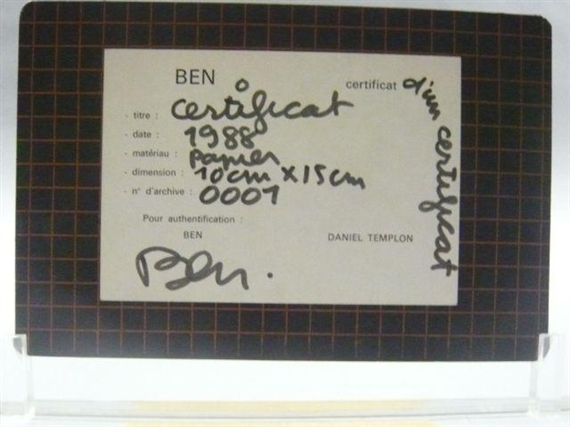 BEN
certificat d'un certificat
titre : certificat
date : 1988
matériau : papier
dimension : 10cm x 15cm
n° d'archive : 0001
Pour authentification :
BEN DANIEL TEMPLON
Ben.